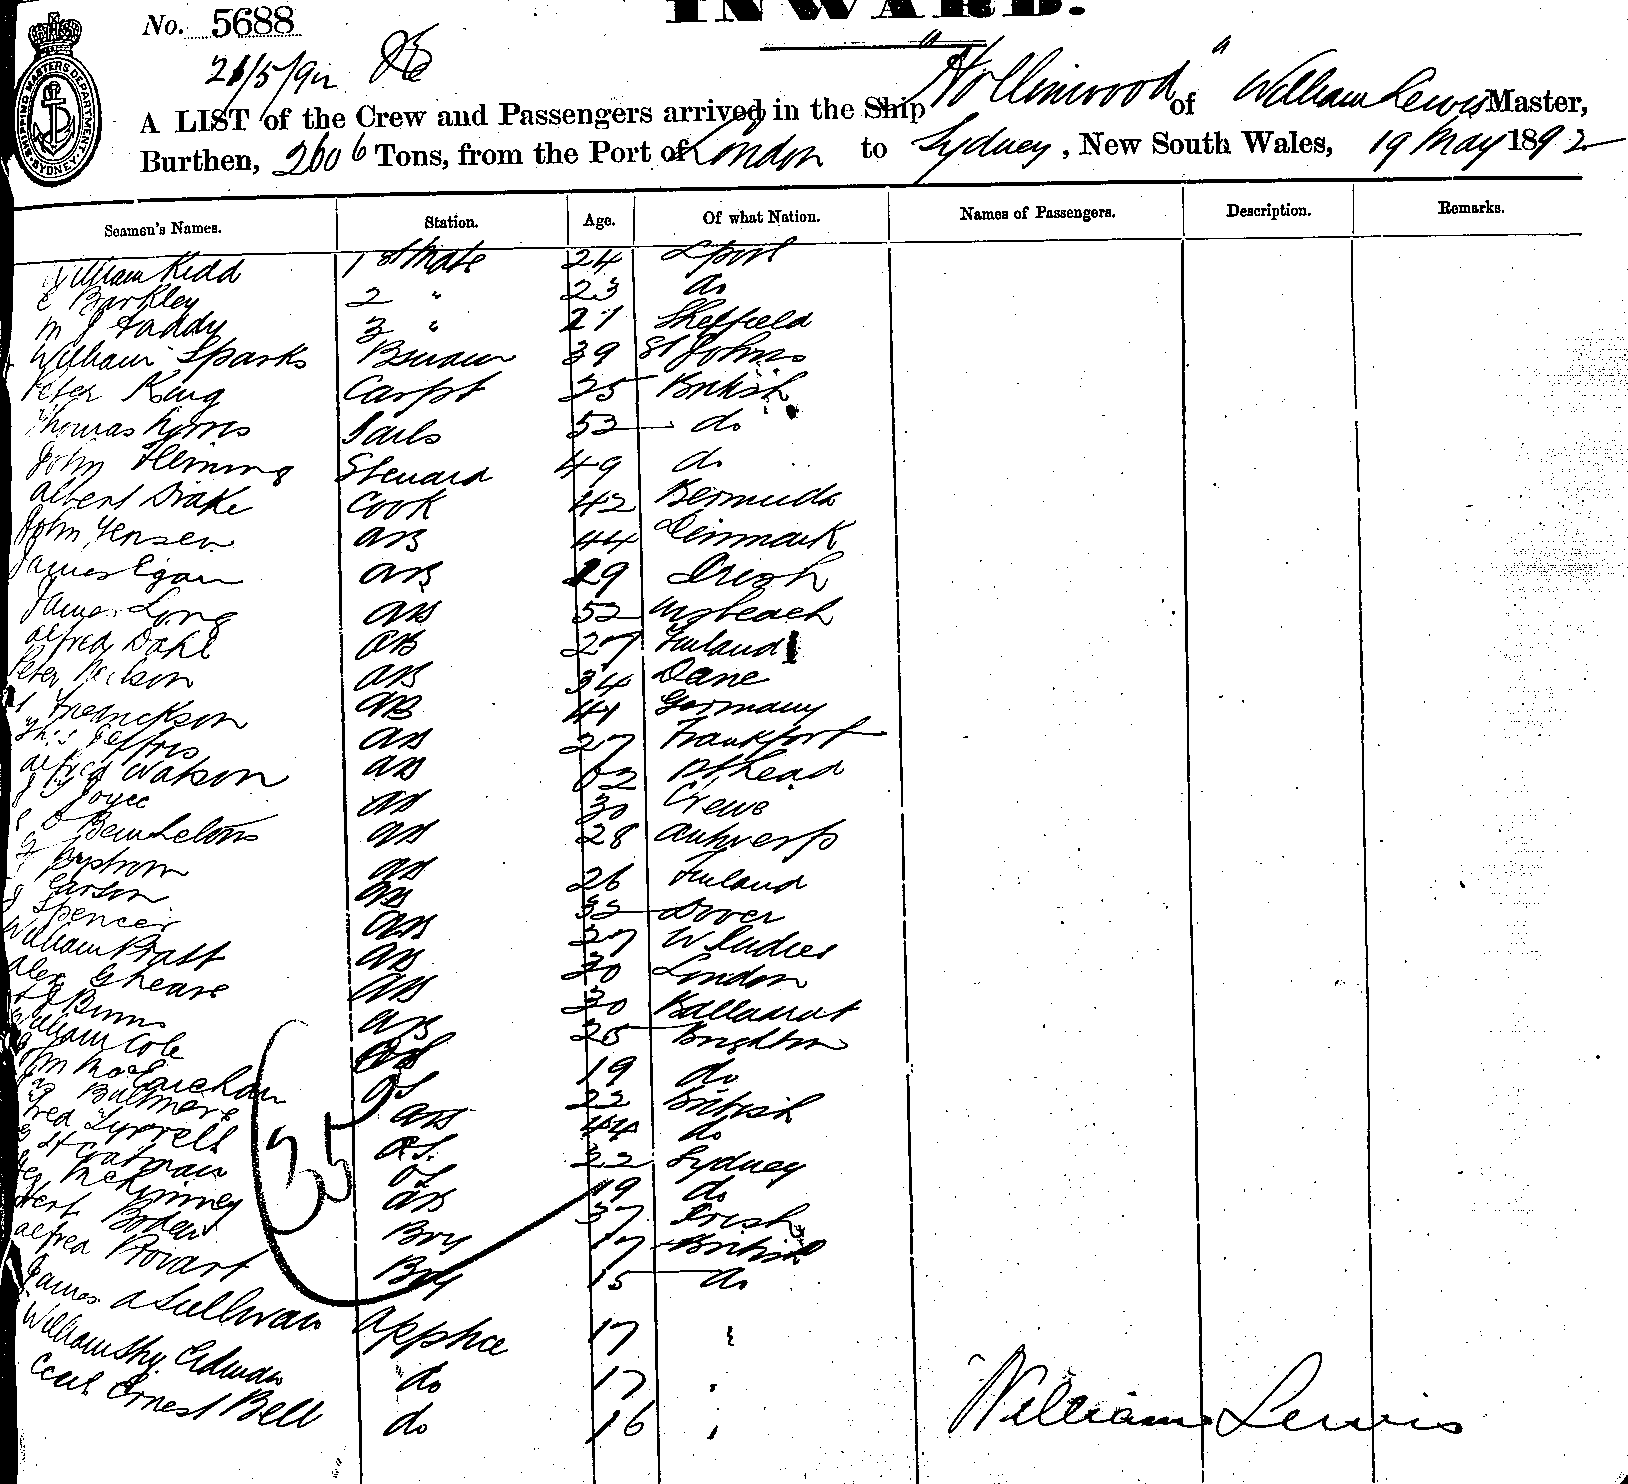 INWARD.
No. 5688
21/5/92
A LIST of the Crew and Passengers arrived in the Ship "Hollinwood" of William Lewis Master,
Burthen, 2606 Tons, from the Port of London to Sydney, New South Wales, 19 May 1892
Seamen's Names. Station. Age. Of what Nation. Names of Passengers. Description. Remarks.
William Kidd 1st Mate 24 Lpool
E Barkley 2 " 23 do
M J Haddy 3 " 21 Sheffield
William Sparks 39 St Johns
Peter King Carpt 25 British
Thomas Norris Sails 52 do
John Fleming Steward 49 do
Albert Drake Cook 42 Bermuda
John Jensen AB 44 Denmark
James Egan AB 29 Irish
James Long AB 52
Alfred Dahl AB 27 Finland
Peter Neilson AB 34 Dane
Fredrickson AB 41 Germany
Jeffris AB 27 Frankfort
Alfred Watson AB
Joyce AB 30 Crewe
AB 28 Antwerp
Bystrom AB 26 Finland
Carson AB 32 Dover
J Spencer AB 27 W Indies
William Pratt AB 30 London
Alex Gheare AB 30 Ballarat
Bunn AB 25 Brighton
William Cole OS 19 do
John OS 22 British
AB 44 do
Fred Tyrrell OS. 22 Sydney
OS 19 do
McKinney AB 37 Irish
Boden Boy 17 British
Alfred Provart Boy 15 do
James O Sullivan Apptice 17 "
William do 17 "
Cecil Ernest Bell do 16 "
35
William Lewis
SHIPPING MASTERS DEPARTMENT
SYDNEY